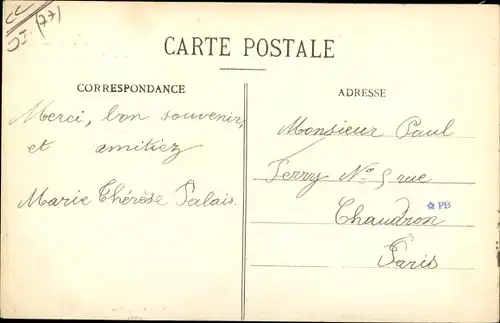 (77)
CARTE POSTALE
CORRESPONDANCE
Merci, bon souvenir,
et amitiez
Marie Thérèse Palais.
ADRESSE
Monsieur Paul
Ferry N° 5 rue
Chaudron
PB
Paris